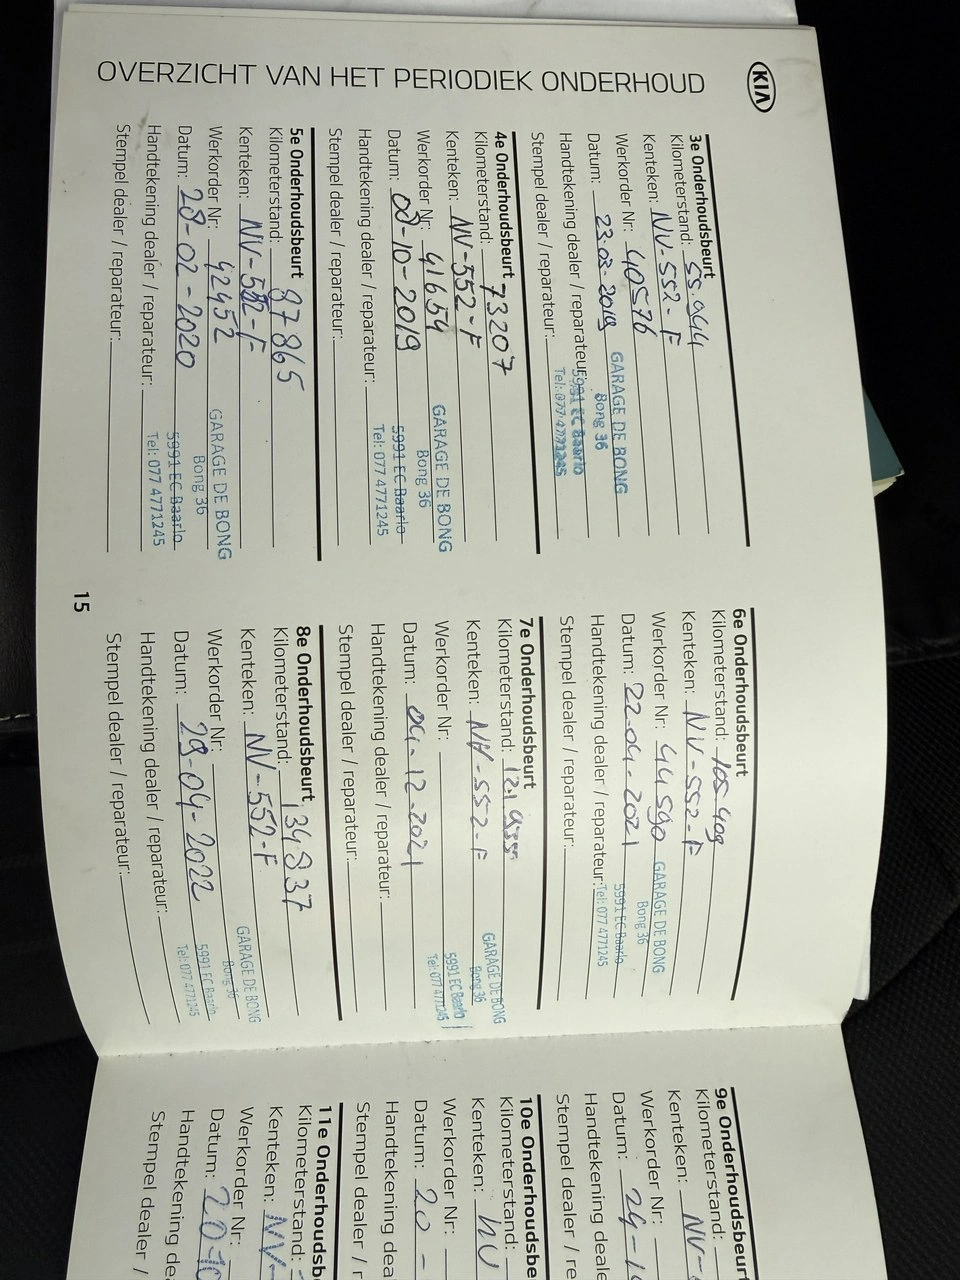 KIA
OVERZICHT VAN HET PERIODIEK ONDERHOUD
3e Onderhoudsbeurt
Kilometerstand: 55.044
Kenteken: NV-552-F
Werkorder Nr: 40576
Datum: 23-03-2019
Handtekening dealer / reparateur:
Stempel dealer / reparateur:
GARAGE DE BONG
Bong 36
5991 EC Baarlo
Tel: 077 4771245
4e Onderhoudsbeurt
Kilometerstand: 73207
Kenteken: NV-552-F
Werkorder Nr: 41654
Datum: 08-10-2019
Handtekening dealer / reparateur:
Stempel dealer / reparateur:
GARAGE DE BONG
Bong 36
5991 EC Baarlo
Tel: 077 4771245
5e Onderhoudsbeurt
Kilometerstand: 87865
Kenteken: NV-552-F
Werkorder Nr: 42452
Datum: 28-02-2020
Handtekening dealer / reparateur:
Stempel dealer / reparateur:
GARAGE DE BONG
Bong 36
5991 EC Baarlo
Tel: 077 4771245
15
6e Onderhoudsbeurt
Kilometerstand: 105409
Kenteken: NV-552-F
Werkorder Nr: 44590
Datum: 22-04-2021
Handtekening dealer / reparateur:
Stempel dealer / reparateur:
GARAGE DE BONG
Bong 36
5991 EC Baarlo
Tel: 077 4771245
7e Onderhoudsbeurt
Kilometerstand:
Kenteken: NV-552-F
Werkorder Nr:
Datum: 04-12-2021
Handtekening dealer / reparateur:
Stempel dealer / reparateur:
GARAGE DE BONG
Bong 36
5991 EC Baarlo
Tel: 077 4771245
8e Onderhoudsbeurt
Kilometerstand: 134937
Kenteken: NV-552-F
Werkorder Nr:
Datum: 29-04-2022
Handtekening dealer / reparateur:
Stempel dealer / reparateur:
GARAGE DE BONG
Bong 36
5991 EC Baarlo
Tel: 077 4771245
9e Onderhoudsbeurt
Kilometerstand:
Kenteken: NV-
Werkorder Nr:
Datum: 24-1
Handtekening deale
Stempel dealer / re
10e Onderhoudsbe
Kilometerstand:
Kenteken: NV
Werkorder Nr:
Datum: 20-
Handtekening dea
Stempel dealer / r
11e Onderhoudsb
Kilometerstand:
Kenteken: NV-
Werkorder Nr:
Datum: 20-10
Handtekening de
Stempel dealer /